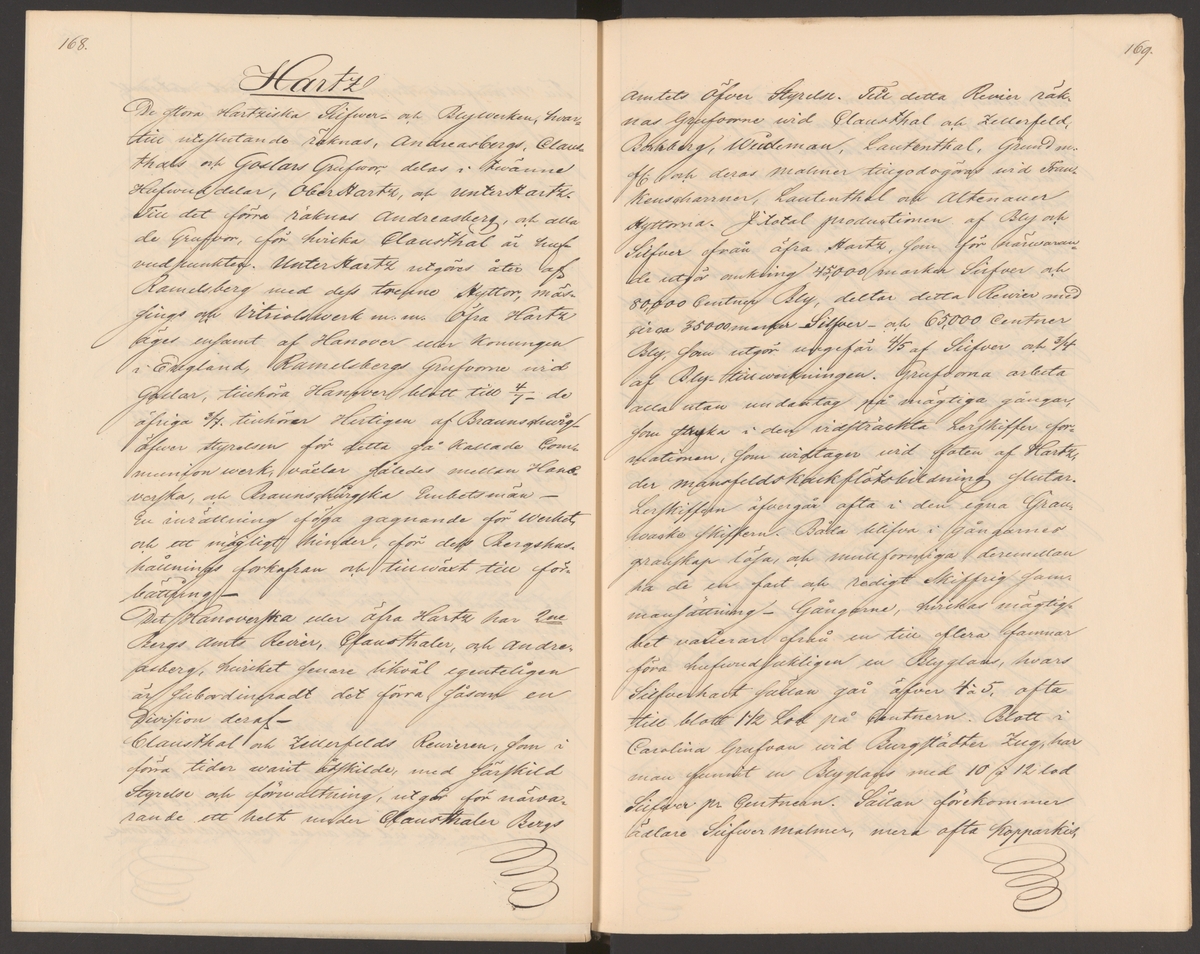 168.
Hartz
De stora Hartziska Silfwer- och Blywerken, hvar-
till uteslutande räknas, Andreasbergs, Claus-
thals och Goslars Grufvor, delas i twänne
Hufwuddelar, OberHartz, och UnterHartz.
Till det förra räknas Andreasberg, och alla
de Grufvor, för hvilka Clausthal är huf-
vudpunkten. UnterHartz utgöres åter af
Ramelsberg med dess trenne Hyttor, mäs-
sings och Vitriolswerk m. m. Öfra Hartz
äges ensamt af Hanover eller Konungen
i England, Ramelsbergs Grufvorne wid
Goslar, tillhöra Hanover blott till 4/7 de
öfriga 3/7 tillhörer Hertigen af Braunschwig-
öfwer styrelsen för detta så kallade Com-
munion werk, växlar således mellan Hano-
verska, och Braunschwigska Embetsmän —
En inrättning föga gagnande för Werket,
och ett möjligt hinder, för dess Bergshus-
hållnings forkofran och tillwäxt till för-
bättring —
Det Hanoverska eller öfra Hartz har 2ne
Bergs Amts Revier, Clausthaler, och Andre-
asberg, hvilket senare likväl egenteligen
är subordineradt det förra, såsom en
Division deraf —
Clausthal och Zellerfelds Revieren, som i
förra tider warit åtskilde, med särskild
Styrelse och förwaltning, utgör för närva-
rande ett helt under Clausthaler Bergs
169.
Amtets Öfver Styrelse. Till detta Revier räk-
nas Grufvorne wid Clausthal och Zellerfeld,
Bokberg, Wildeman, Lautenthal, Grund m.
fl. och deras malmer tillgodogöras wid Fran-
kenscharrner, Lautenthal och Altenauer
Hyttorna. I total productionen af Bly och
Silfver från öfra Hartz, som för närwaran-
de utgör omkring 45,000 marker Silfver och
80,000 Centner Bly, deltar detta Revier med
circa 35000 marker Silfver- och 65,000 Centner
Bly, som utgör ungefär 4/5 af Silfver och 3/4
af Bly-tillwerkningen. Grufvorna arbeta
alla utan undantag på mägtiga gångar,
som stryka i den vidsträckta Lerskiffer for-
mationen, som widtager wid foten af Hartz,
der mansfeldskalkflötsbildning slutar.
Lerskiffern öfvergår ofta i den egna Grau-
wacke skiffern. Båda blifva i Gångarnes
granskap lösa, och mullformiga deremellan
ha de en fast och redigt skiffrig sam-
mansättning — Gångarne, hvilkas mägtig-
het varierar från en till flera famnar
föra hufwudsakligen en Blyglans, hvars
Silfverhalt sällan går öfver 4 à 5, ofta
till blott 1 1/2 Lod på Centnern. Blott i
Carolina Grufvan wid Burgstädter Zug, har
man funnit en Blyglans med 10 à 12 lod
Silfwer pr Centnern. Sällan förekommer
ädlare Silfwer malmer, mera ofta Kopparkis,